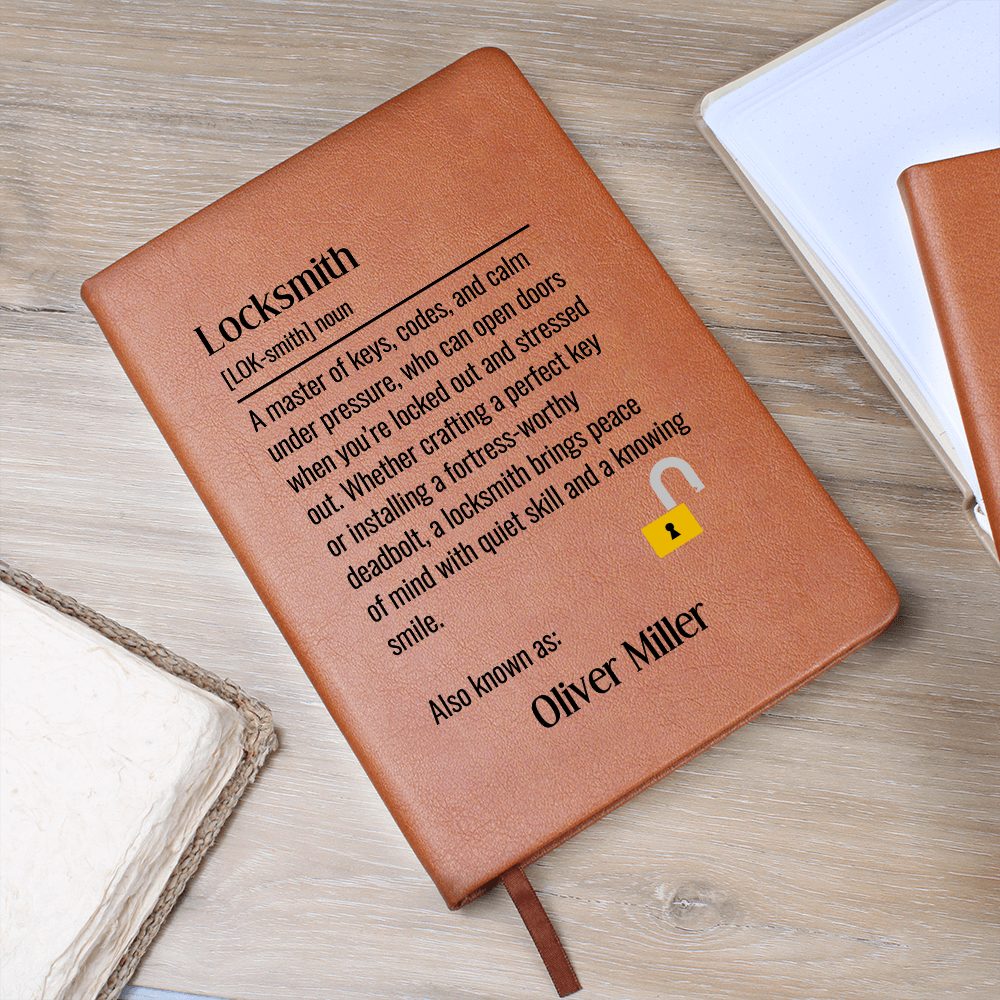 Locksmith
[LOK-smith] noun
A master of keys, codes, and calm
under pressure, who can open doors
when you're locked out and stressed
out. Whether crafting a perfect key
or installing a fortress-worthy
deadbolt, a locksmith brings peace
of mind with quiet skill and a knowing
smile.
Also known as:
Oliver Miller